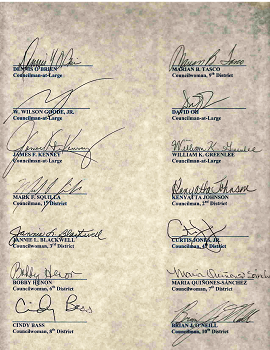 Dennis O'Brien
DENNIS O'BRIEN
Councilman-at-Large
Marian B. Tasco
MARIAN B. TASCO
Councilwoman, 9th District
W. WILSON GOODE, JR.
Councilman-at-Large
DAVID OH
Councilman-at-Large
James F. Kenney
JAMES F. KENNEY
Councilman-at-Large
William K. Greenlee
WILLIAM K. GREENLEE
Councilman-at-Large
MARK F. SQUILLA
Councilman, 1st District
Kenyatta Johnson
KENYATTA JOHNSON
Councilman, 2nd District
Jannie L. Blackwell
JANNIE L. BLACKWELL
Councilwoman, 3rd District
CURTIS JONES, JR.
Councilman, 4th District
Bobby Henon
BOBBY HENON
Councilman, 6th District
MARIA QUIÑONES-SÁNCHEZ
Councilwoman, 7th District
Cindy Bass
CINDY BASS
Councilwoman, 8th District
BRIAN J. O'NEILL
Councilman, 10th District